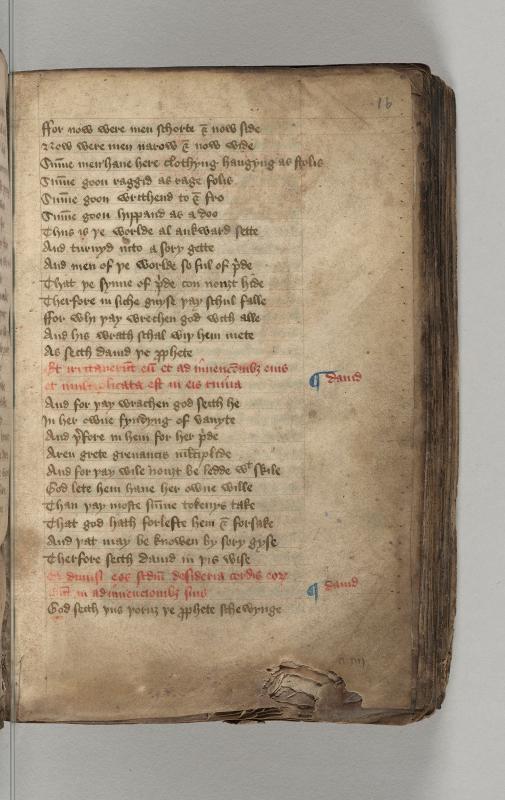 16
ffor now were men schorte & now side
Now were men narow & now wide
Su̅me men hane here clothyng hangyng as stolis
Su̅me goon raggid as rage folis
Su̅me goon writhend to & fro
Su̅me goon hippand as a doo
Thus is þe worlde al aukward sette
And turnyd into a sory gette
And men of þe worlde so ful of p̅de
That þe synne of p̅de con nouȝt hide
Therfore in siche gyse þay schul falle
ffor why þay wrethen god with alle
And his wrath schal wiþ hem mete
As seith dauid þe ꝓphete
Et irritauerūt eū et ad inuencōnibꝫ suis
et multiplicata est in eis ruina
¶ dauid
And for þay wrathen god seith he
In her owne fyndyng of vanyte
And þ̅fore in hem for her p̅de
Aren grete greuancis
And for þay wile nouȝt be ledde wᵗ skile
God lete hem hane her owne wille
Than þay moste su̅me tokenys take
That god hath forlefte hem & forsake
And þat may be knowen by sory gyse
Therfore seith dauid in þis wise
Et dimisi eos scdm̄ desideria cordis eoꝝ
in adinuencionibꝫ suis
¶ dauid
God seith þus þoruȝ þe ꝓphete schewynge